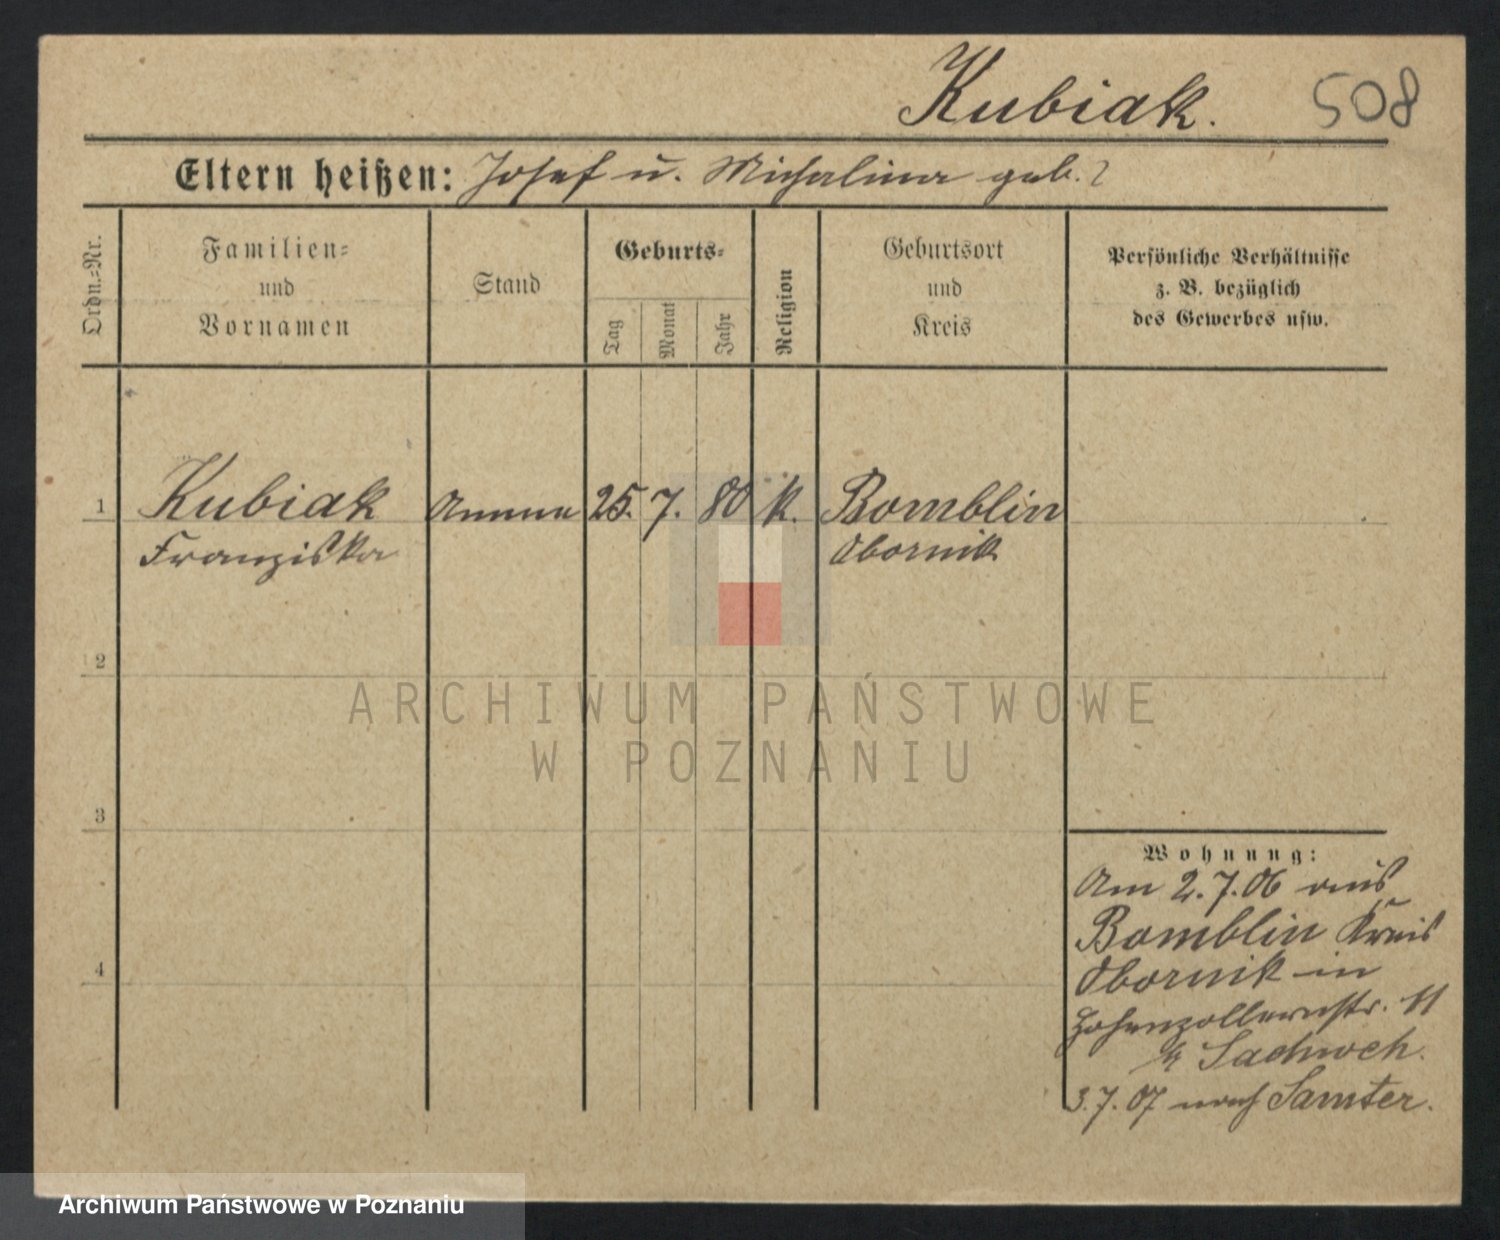 Kubiak. 508
Eltern heißen: Josef u. Michalina geb. ?
Ordn.=Nr.
Familien=
und
Vornamen
Stand
Geburts=
Tag
Monat
Jahr
Religion
Geburtsort
und
Kreis
Persönliche Verhältnisse
z. B. bezüglich
des Gewerbes usw.
1 Kubiak Amme 25. 7. 80 k. Bomblin
Franziska Obornik
2
3
4
Wohnung:
Am 2.7.06 aus
Bomblin Kreis
Obornik in
Hohenzollernstr. 11
Sachweh.
3.7.07 nach Samter.
ARCHIWUM PAŃSTWOWE
W POZNANIU
Archiwum Państwowe w Poznaniu